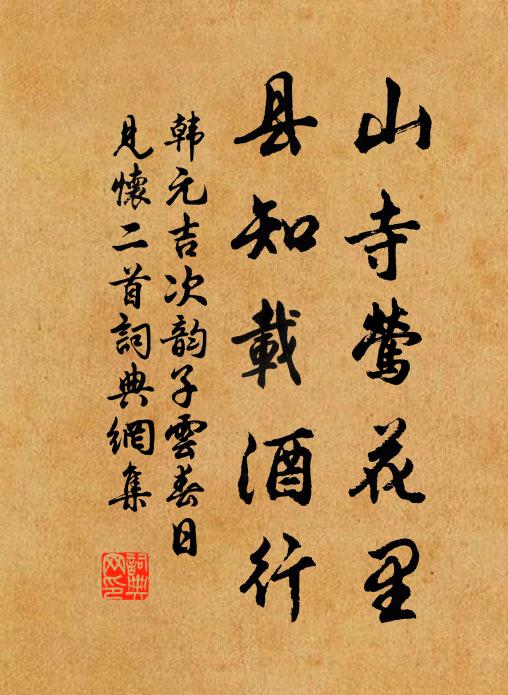 山寺莺花里
县知載酒行
韩元吉次韵子雲春日
見懷二首詞典網集
詞典
网印